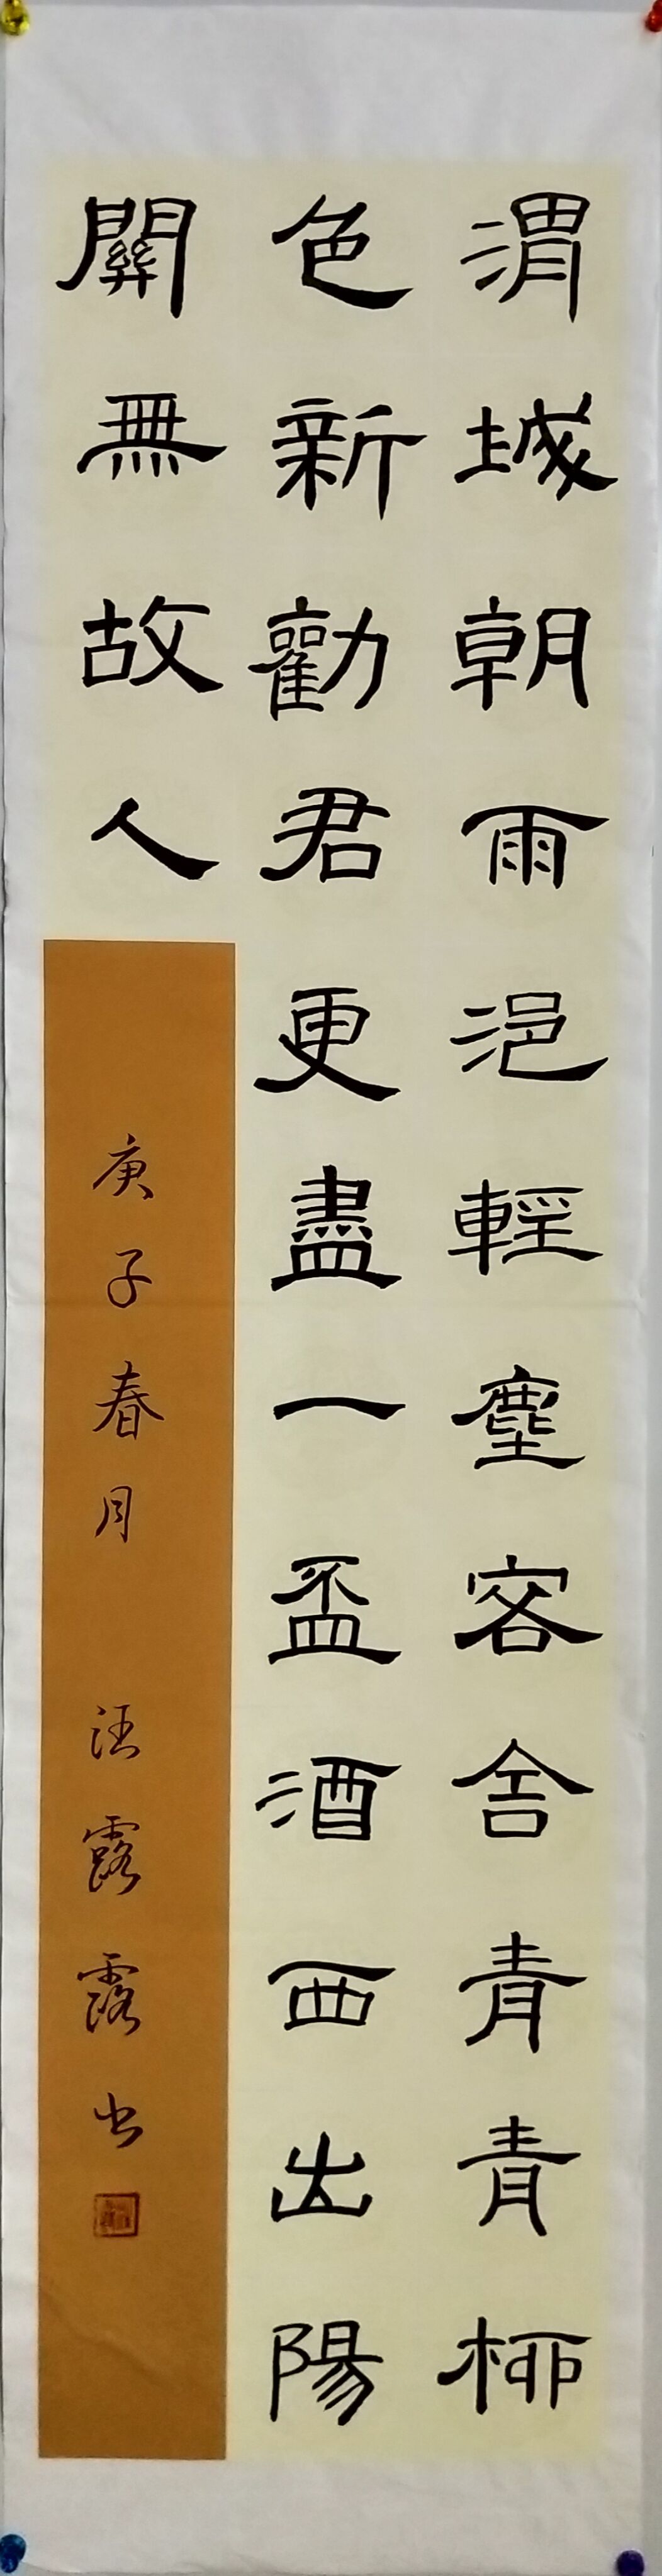 渭城朝雨浥輕塵客舍青青柳
色新勸君更盡一盃酒西出陽
關無故人
庚子春月 汪露露书